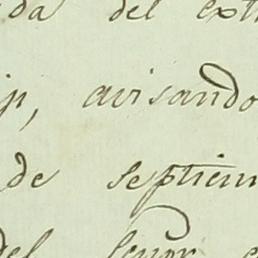 da del ext
p, avisando
de septiem
del Señor e